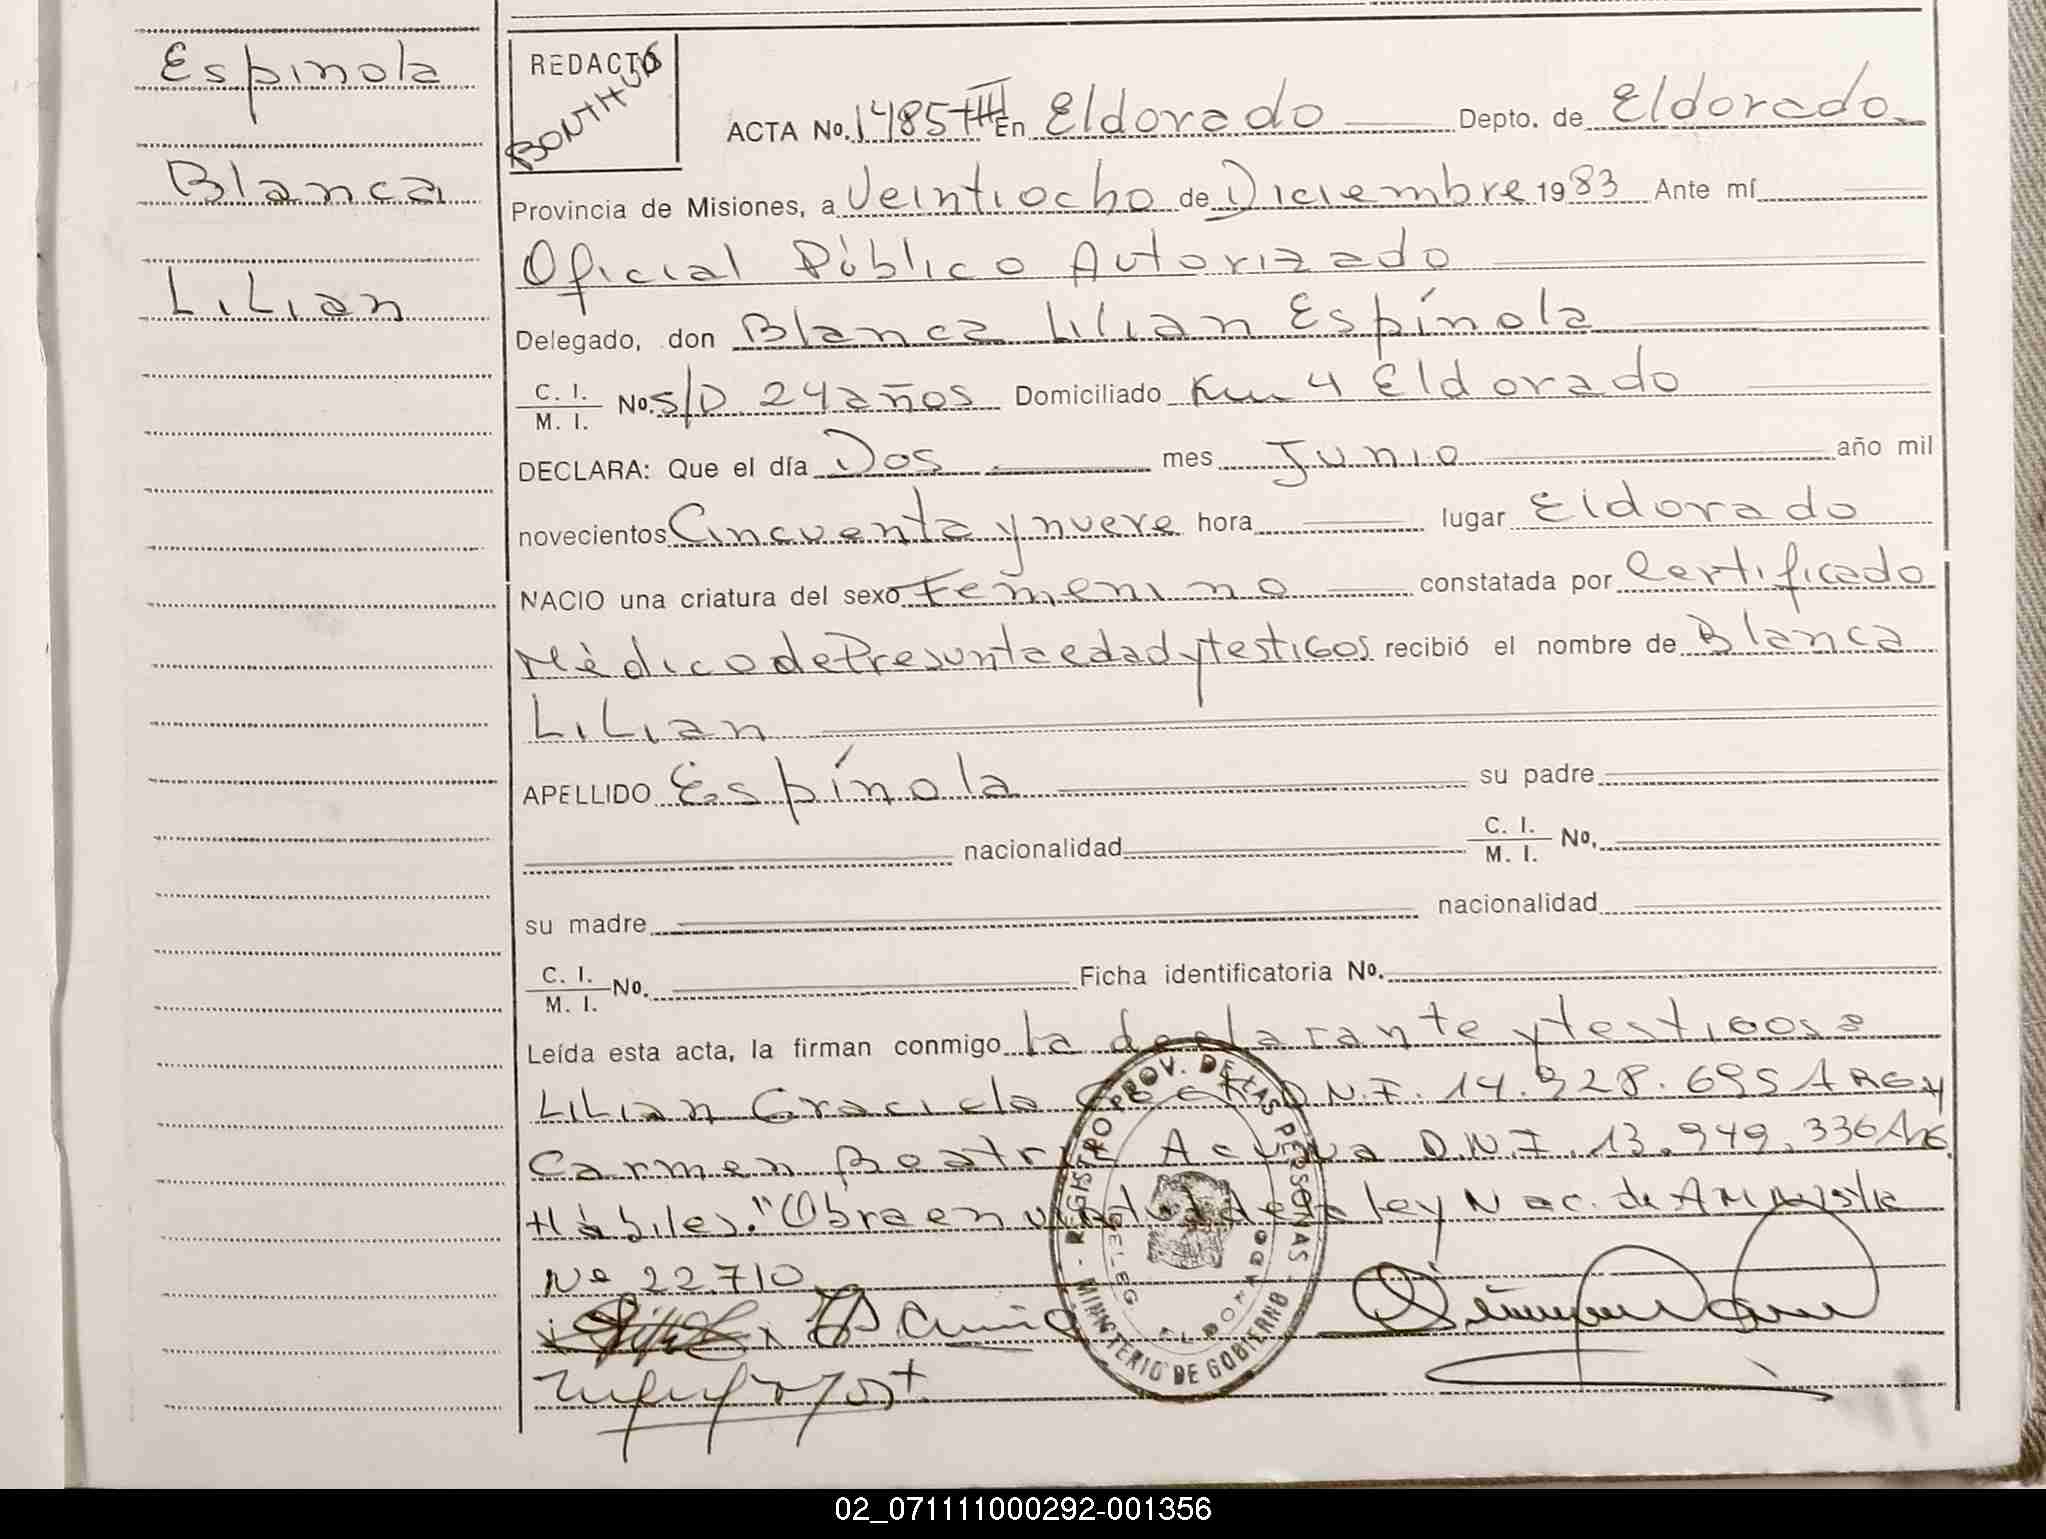 Espinola
Blanca
Lilian
REDACTÓ
BONTHUS
ACTA No. 1485 TºIII En Eldorado Depto. de Eldorado
Provincia de Misiones, a Veintiocho de Diciembre 1983 Ante mí
Oficial Público Autorizado
Delegado, don Blanca Lilian Espínola
C. I.
M. I. No. S/D 24 años Domiciliado Km 4 Eldorado
DECLARA: Que el día Dos mes Junio año mil
novecientos Cincuenta y nueve hora lugar Eldorado
NACIO una criatura del sexo Femenino constatada por Certificado
Mèdico de Presunta edad y testigos recibió el nombre de Blanca
Lilian
APELLIDO Espínola su padre
nacionalidad C. I.
M. I. No.
su madre nacionalidad
C. I.
M. I. No. Ficha identificatoria No.
Leída esta acta, la firman conmigo la declarante y testigos:
Lilian Graciela D.N.I. 14.928.695 Arg y
Carmen Beatriz Acuña D.N.I. 13.949.336 Arg
Hábiles. "Obra en virtud de la ley Nac. de Amnistia
Nº 22.710
REGISTRO PROV. DE LAS PERSONAS
DELEG. ELDORADO
MINISTERIO DE GOBIERNO
02_071111000292-001356